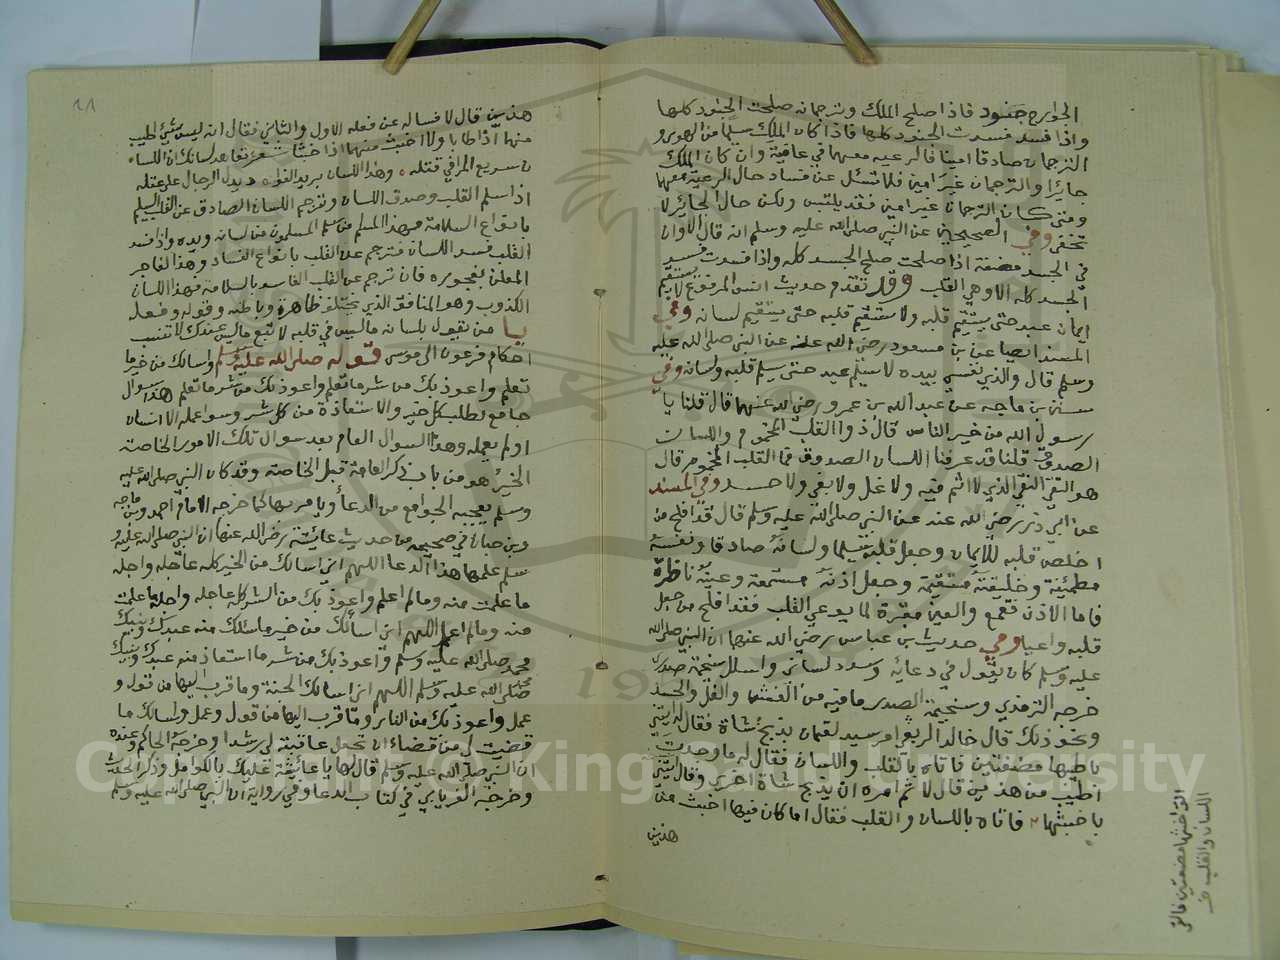 الجوارح جنود فاذا صلح الملك وترجمانه صلحت الجنود كلها
واذا فسد فسدت الجنود كلها فاذا كان الملك سليما من الهوى و
الترجمان صادقا امينا فالرعيه معهما في عافية وان كان الملك
جايرا والترجمان غير امين فلا تسئل عن فساد حال الرعية معهما
ومتى كان الترجمان غير امين فقد يلتبس ولكن حال الجائر لا
تخفى وفي الصحيحين عن النبي صلى الله عليه وسلم انه قال الا وان
في الجسد مضغة اذا صلحت صلح الجسد كله واذا فسدت فسد
الجسد كله الا وهي القلب وقد تقدم حديث انس المرفوع لا يستقيم
ايمان عبد حتى يستقيم قلبه ولا يستقيم قلبه حتى يستقيم لسانه وفي
المسند ايضا عن بن مسعود رضي الله عنه عن النبي صلى الله عليه
وسلم قال والذي نفسي بيده لا يسلم عبد حتى يسلم قلبه ولسانه وفي
سنن بن ماجه عن عبد الله بن عمرو رضي الله عنهما قال قلنا يا
رسول الله من خير الناس قال ذوا القلب المخموم واللسان
الصدوق قلنا قد عرفنا اللسان الصدوق فما القلب المخموم قال
هو التقي النقي الذي لا اثم فيه ولا غل ولا بغي ولا حسد وفي المسند
عن ابي ذر رضي الله عنه عن النبي صلى الله عليه وسلم قال قد افلح من
اخلص قلبه للايمان وجعل قلبه سليما ولسانه صادقا ونفسه
مطمئنة وخليقته مستقيمة وجعل اذنه مستمعة وعينه ناظرة
فاما الاذن فقمع والعين مقرة لما يوعي القلب فقد افلح من جعل
قلبه واعيا وفي حديث بن عباس رضي الله عنهما ان النبي صلى الله
عليه وسلم كان يقول في دعائه وسدد لساني واسلل سخيمة صدري
خرجه الترمذي وسخيمة الصدر ما فيه من الغش والغل والحسد
ونحو ذلك قال خالد الربعي امر سيد لقمان بذبح شاة فقال له ايتني
باطيبها مضغتين فاتاه بالقلب واللسان فقال له ما وجدت
اطيب من هذين قال لا ثم امره ان يذبح شاة اخرى وقال ايتني
باخبثها فاتاه باللسان والقلب فقال اما كان فيها اخبث من
هذين
اللسان والقلب
هذين قال لا فساله عن فعله الاول والثاني فقال انه ليس شيئ اطيب
منهما اذا طابا ولا اخبث منهما اذا خبثا شعر تعاهد لسانك ان اللسا
ن سريع المرء في قتله وهذا اللسان بريد الفواد يدل الرجال على عقله
اذا سلم القلب وصدق اللسان وترجم اللسان الصادق عن القلب السليم
بانواع السلامة فهذا المسلم من سلم المسلمون من لسانه ويده واذا فسد
القلب فسد اللسان فترجم عن القلب بانواع الفساد وهذا الفاجر
المعلن بفجوره فان ترجم عن القلب الفاسد بالسلامة فهذا اللسان
الكذوب وهو المنافق الذي يختلف ظاهره وباطنه وقوله وفعله
يا من يقول بلسانه ما ليس في قلبه لا تبع ما ليس عندك لا تغتب
احكام فرعون الى موسى قوله صلى الله عليه وسلم واسالك من خير ما
تعلم واعوذ بك من شر ما تعلم واعوذ بك من شر ما تعلم هذا سوال
جامع لطلب كل خير والاستعاذة من كل شر وسوا علمه الانسان
او لم يعلمه وهذا السوال العام بعد سوال تلك الامور الخاصة
الخير هو من باب ذكر العامة قبل الخاصة وقد كان النبي صلى الله عليه
وسلم يعجبه الجوامع من الدعا ويامر بها كما خرجه الامام احمد وبن ماجه
وبن حبان في صحيحه من حديث عائشة رضي الله عنها ان النبي صلى الله عليه و
سلم علمها هذا الدعا اللهم اني اسالك من الخير كله عاجله واجله
ما علمت منه وما لم اعلم واعوذ بك من الشر كله عاجله واجله ما علمت
منه وما لم اعلم اللهم اني اسألك من خير ما سئلك منه عبدك ونبيك
محمد صلى الله عليه وسلم واعوذ بك من شر ما استعاذ منه عبدك ونبيك
محمد صلى الله عليه وسلم اللهم اني اسالك الجنة وما قرب اليها من قول و
عمل واعوذ بك من النار وما قرب اليها من قول وعمل واسالك ما
قضيت لي من قضاء ان تجعل عاقبته لي رشدا وخرجه الحاكم وعنده
ان النبي صلى الله عليه وسلم قال لها يا عائشة عليك بالكوامل وذكر الحديث
وخرجه الفريابي في كتاب الدعا وفي رواية ان النبي صلى الله عليه وسلم
Copyright © King Saud University